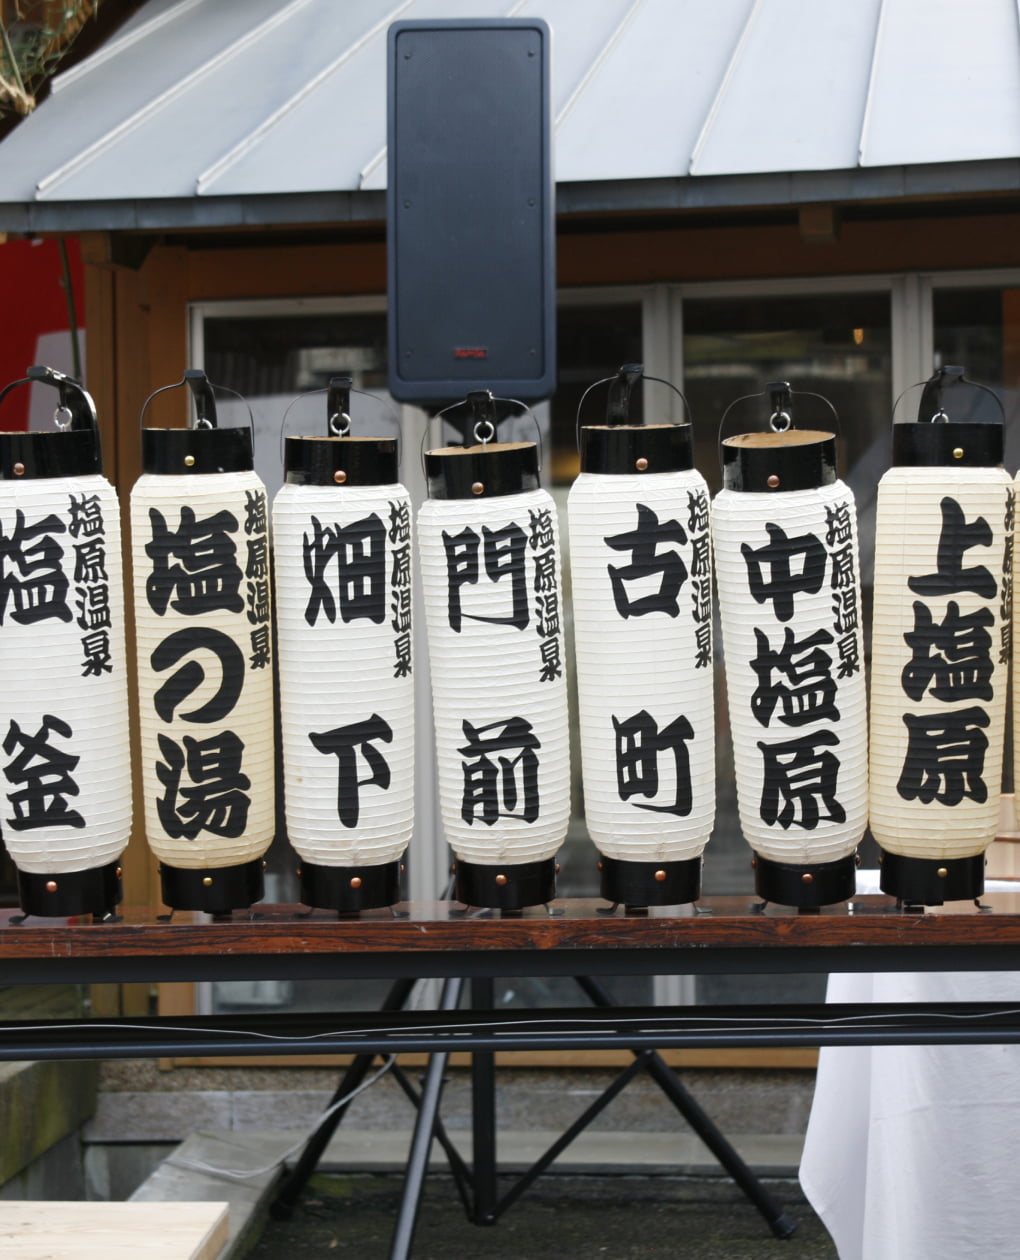 塩原温泉
塩釜
塩原温泉
塩の湯
塩原温泉
畑下
塩原温泉
門前
塩原温泉
古町
塩原温泉
中塩原
上塩原